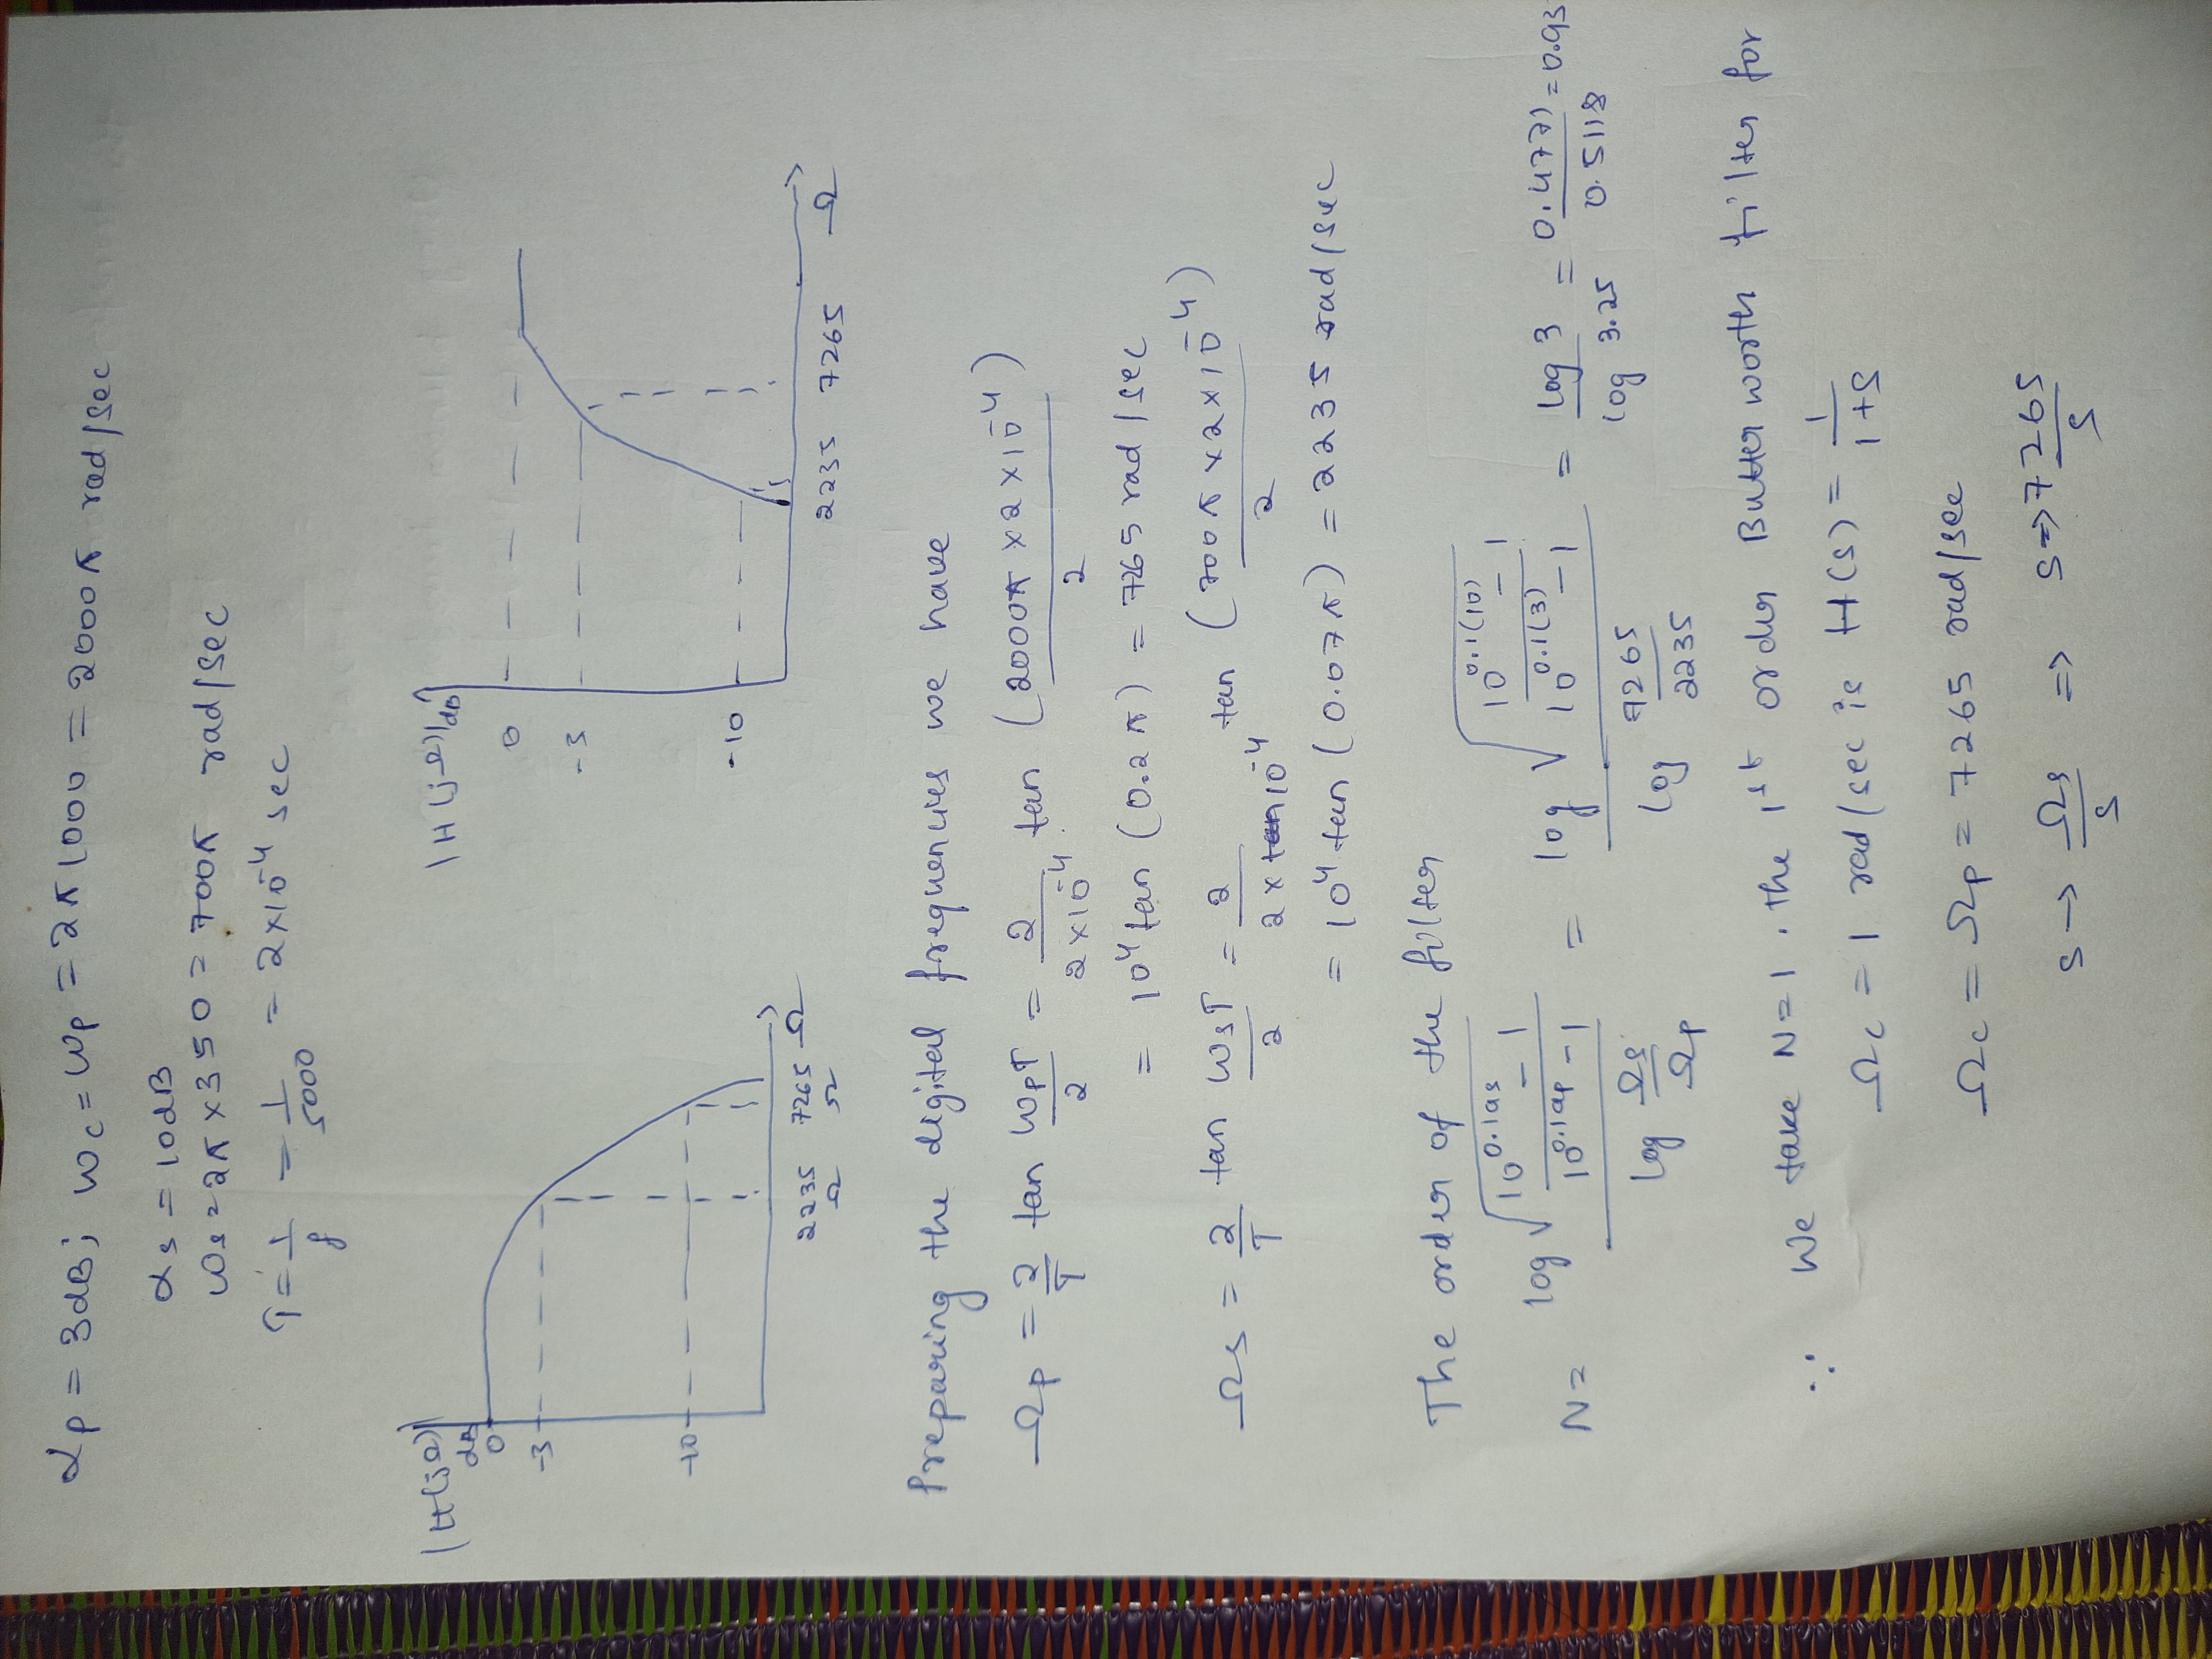 αp = 3dB; ωc = ωp = 2π 1000 = 2000π rad/sec
αs = 10dB
ωs = 2π × 350 = 700π rad/sec
T = 1/f = 1/5000 = 2×10^-4 sec
|H(jΩ)|
dB
0
-3
-10
2235 7265 Ω
Ω Ω
|H(jΩ)|dB
0
-3
-10
2235 7265 Ω
Preparing the digital frequencies we have
Ωp = 2/T tan ωpT/2 = 2/(2×10^-4) tan (2000π × 2 × 10^-4)/2
= 10^4 tan (0.2π) = 7265 rad/sec
Ωs = 2/T tan ωsT/2 = 2/(2×10^-4) tan (700π × 2 × 10^-4)/2
= 10^4 tan (0.07π) = 2235 rad/sec
The order of the filter
N = log √((10^0.1αs - 1)/(10^0.1αp - 1)) / log Ωs/Ωp = log √((10^0.1(10) - 1)/(10^0.1(3) - 1)) / log 7265/2235 = log 3/log 3.25 = 0.4771/0.5118 = 0.93
∵ We take N = 1. the 1st order Butter worth filter for
Ωc = 1 rad/sec is H(s) = 1/(1+s)
Ωc = Ωp = 7265 rad/sec
s → Ωs/s ⇒ s ⇒ 7265/s